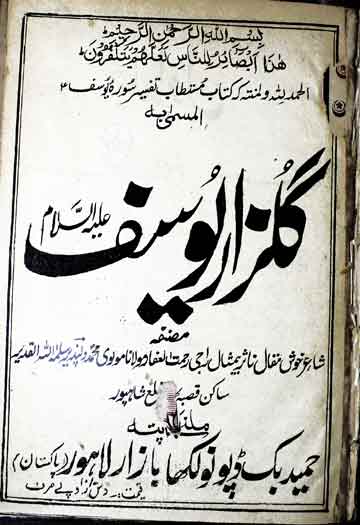 بسم اللہ الرحمن الرحیم
ھٰذَا بَصَائِرُ لِلنَّاسِ لَعَلَّھُمْ یَتَفَکَّرُوْنَ
الحمد للہ و المنتہ کہ کتاب مستطاب تفسیر سورہ یوسف ؑ
المسمیٰ بہ
گلزار یوسف علیہ السلام
مصنفہ
شاعر خوش مقال ناثر بیمثال راجی رحمت الغفار مولانا مولوی محمد دلپذیر سلمہ اللہ القدیر
ساکن قصبہ ضلع شاہپور
ملنے کا پتہ
حمید بک ڈپو نولکھا بازار لاہور (پاکستان)
قیمت